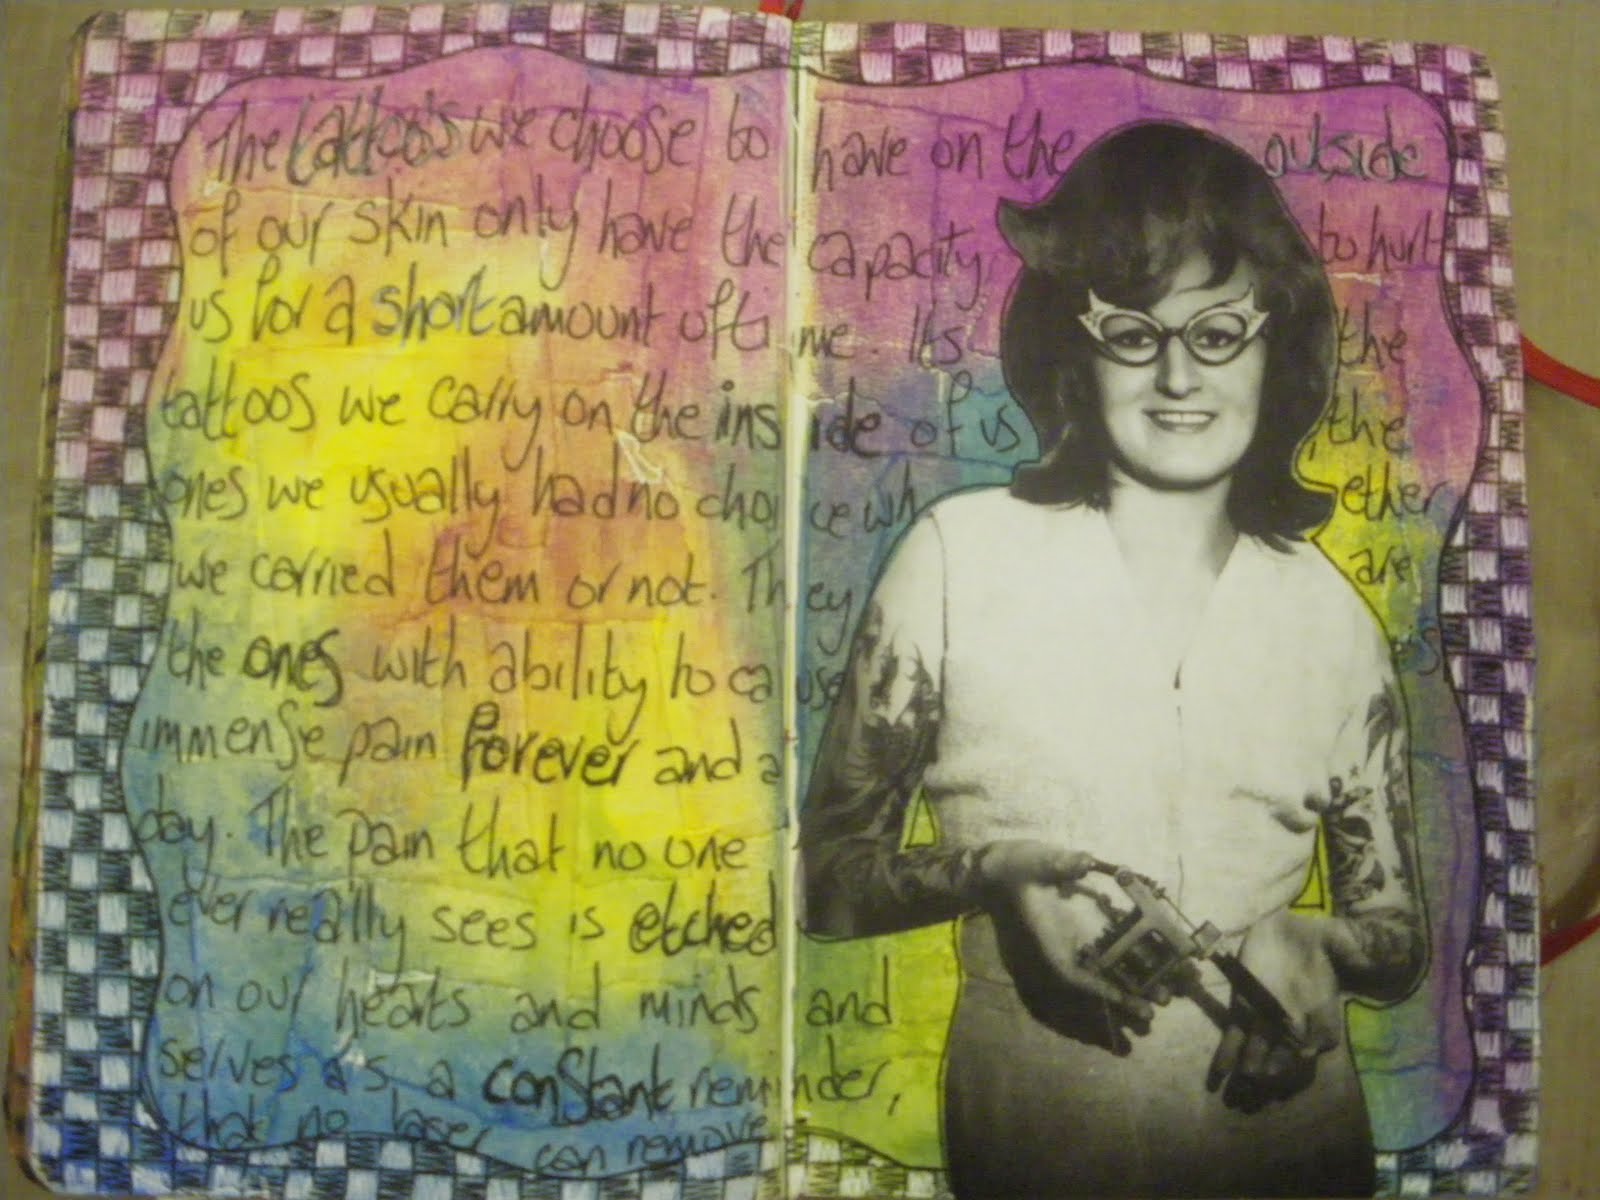 The tattoo's we choose to have on the outside
of our skin only have the capacity to hurt
us for a short amount of time. Its the
tattoos we carry on the inside of us, the
ones we usually had no choice whether
we carried them or not. They are
the ones with ability to cause
immense pain forever and a
day. The pain that no one
ever really sees is etched
on our hearts and minds and
serves as a constant reminder,
that no laser can remove